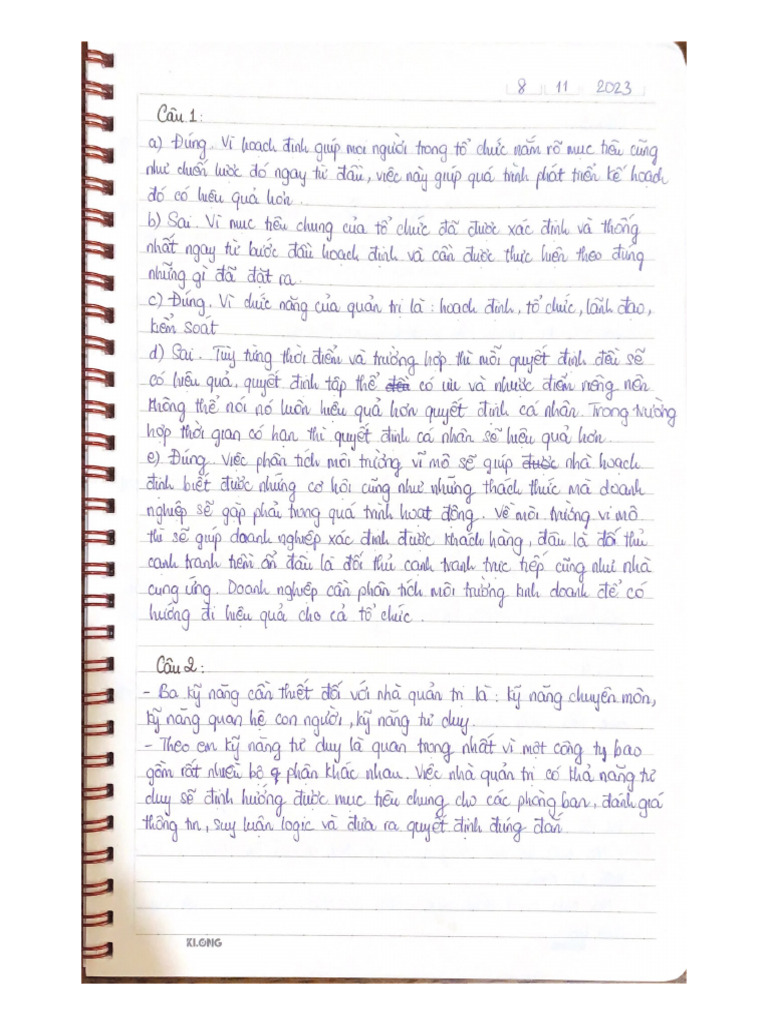 8 11 2023
Câu 1:
a) Đúng. Vì hoạch định giúp mọi người trong tổ chức nắm rõ mục tiêu cũng
như chiến lược đó ngay từ đầu, việc này giúp quá trình phát triển kế hoạch
đó có hiệu quả hơn.
b) Sai. Vì mục tiêu chung của tổ chức đã được xác định và thống
nhất ngay từ bước đầu hoạch định và cần được thực hiện theo đúng
những gì đã đặt ra.
c) Đúng. Vì chức năng của quản trị là: hoạch định, tổ chức, lãnh đạo,
kiểm soát
d) Sai. Tùy từng thời điểm và trường hợp thì mỗi quyết định đều sẽ
có hiệu quả, quyết định tập thể có ưu và nhược điểm riêng nên
không thể nói nó luôn hiệu quả hơn quyết định cá nhân. Trong trường
hợp thời gian có hạn thì quyết định cá nhân sẽ hiệu quả hơn.
e) Đúng. Việc phân tích môi trường vĩ mô sẽ giúp được nhà hoạch
định biết được những cơ hội cũng như những thách thức mà doanh
nghiệp sẽ gặp phải trong quá trình hoạt động. Về môi trường vi mô
thì sẽ giúp doanh nghiệp xác định được khách hàng, đâu là đối thủ
cạnh tranh tiềm ẩn đâu là đối thủ cạnh tranh trực tiếp cũng như nhà
cung ứng. Doanh nghiệp cần phân tích môi trường kinh doanh để có
hướng đi hiệu quả cho cả tổ chức.
Câu 2:
- Ba kỹ năng cần thiết đối với nhà quản trị là: kỹ năng chuyên môn,
kỹ năng quan hệ con người, kỹ năng tư duy.
- Theo em kỹ năng tư duy là quan trọng nhất vì một công ty bao
gồm rất nhiều bộ phân khác nhau. Việc nhà quản trị có khả năng tư
duy sẽ định hướng được mục tiêu chung cho các phòng ban, đánh giá
thông tin, suy luận logic và đưa ra quyết định đúng đắn
KLONG